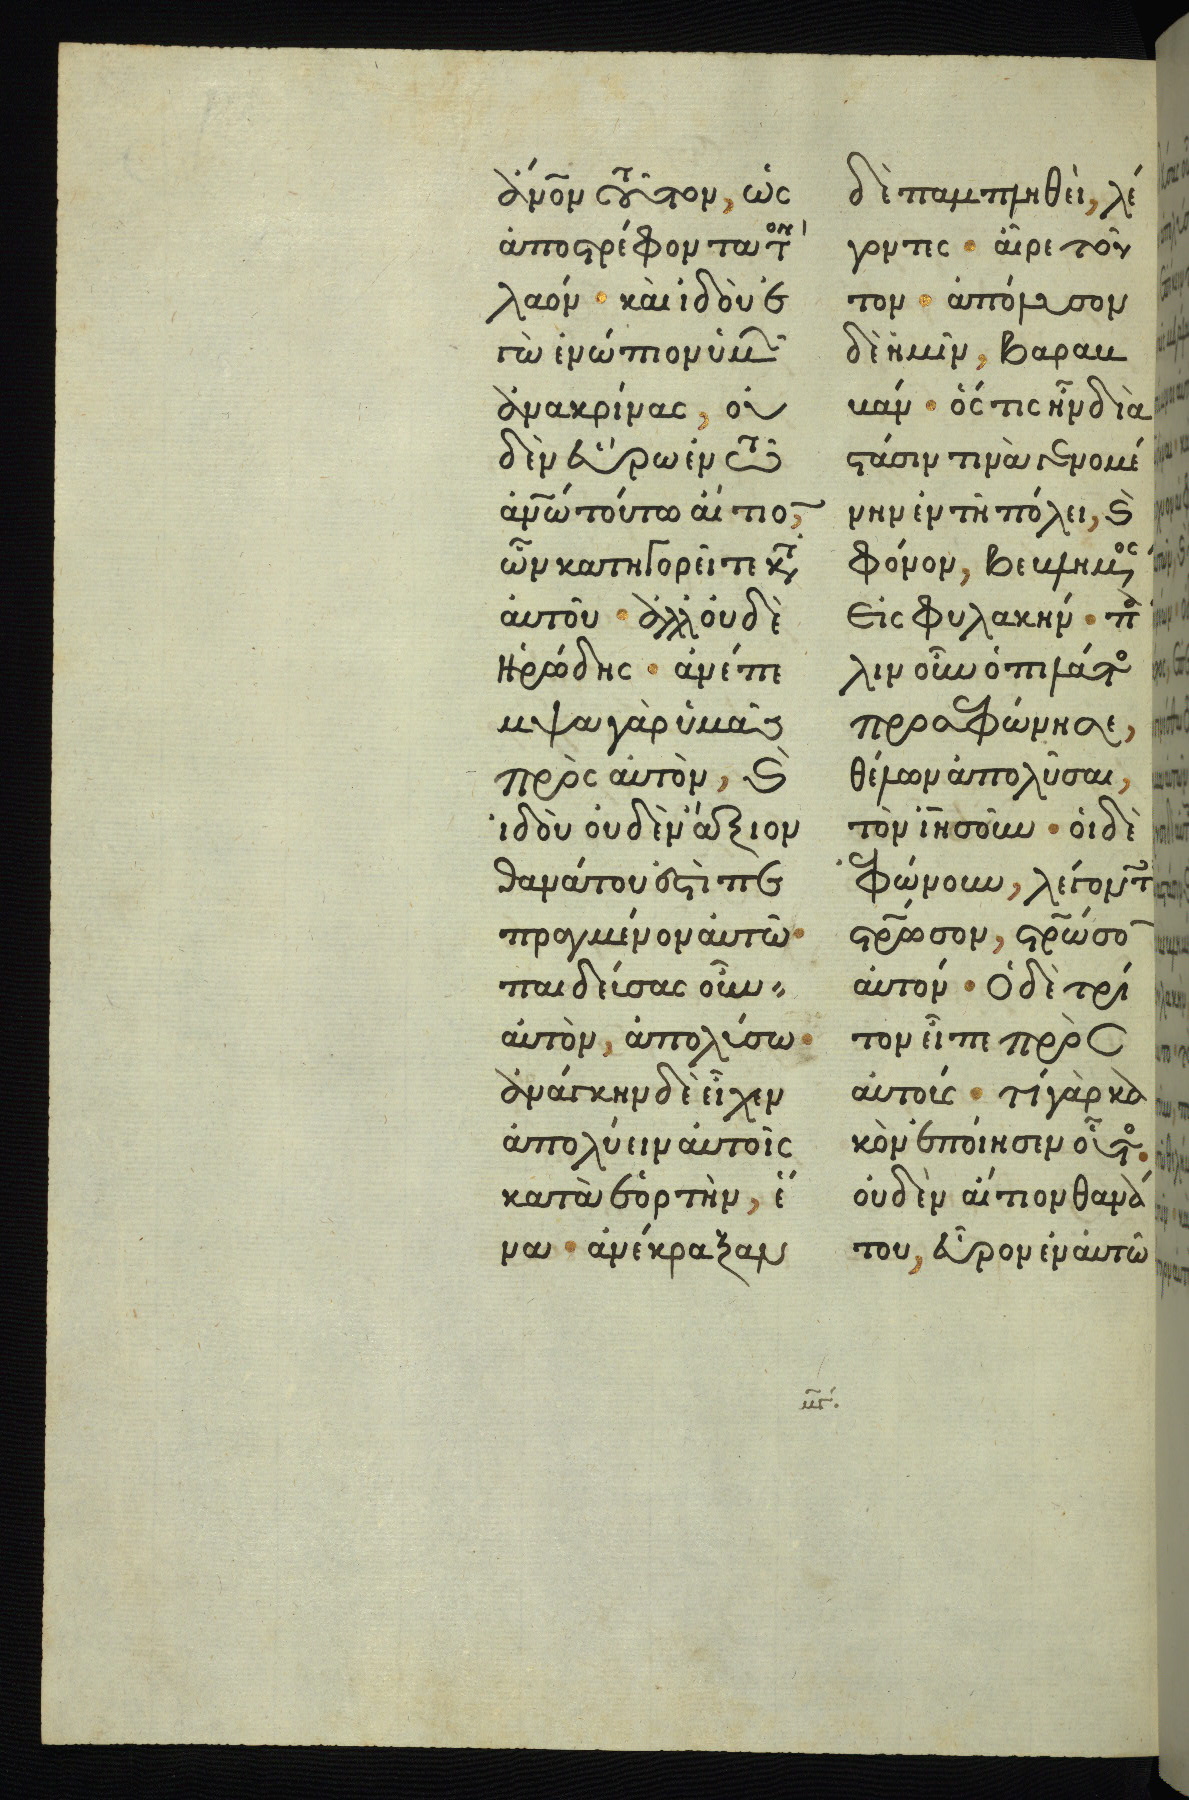 ἀν̅ο̅ν τοῦτον, ὡς
ἀποςρέφοντα τον
λαόν · καὶ ἰδοὺ ἐ
γὼ ἐνώπιον ὑμῶν
ἀνακρίνας, οὐ
δὲν εὗρω ἐν τῶ
ἀν̅ω τούτω αἴτιον,
ὧν κατηγορεῖτε κατ
αὐτοῦ · ἀλλ οὐδὲ
Ἡρώδης · ἀνέπε
μψα γὰρ ὑμᾶς
πρὸς αὐτὸν, καὶ
ἰδοὺ οὐδὲν ἄξιον
θανάτου ἐςὶ πε
πραγμένον αὐτῶ ·
παιδεύσας οὖν
αὐτὸν, ἀπολύσω ·
ἀνάγκην δὲ εἶχεν
ἀπολύειν αὐτοῖς
κατὰ ἑορτὴν, ἕ
να · ἀνέκραξαν
δὲ παμπληθεὶ, λέ
γοντες · αἶρε τοῦ
τον · ἀπόλυσον
δὲ ἡμῖν, Βαραμ
μάν · ὅς τις ἦν διὰ
ςάσιν τινὰ γενομέ
νην ἐν τῆ πόλει, καὶ
φόνον, Βεβλημένος
εἰς φυλακήν · πά
λιν οὖν ὁ πιλάτος
προσεφώνησε,
θέλων ἀπολῦσαι,
τὸν ἰησοῦν · οἱ δὲ
ἐφώνουν, λέγοντες
ςρωσον, ςρώσον
αὐτόν · Ὁ δὲ τρί
τον εἶπε πρὸς
αὐτοίς · τί γὰρ κα
κὸν ἐποίησεν οὗτος ·
οὐδὲν αἴτιον θανά
του, εὗρον ἐν αὐτῶ
μς.